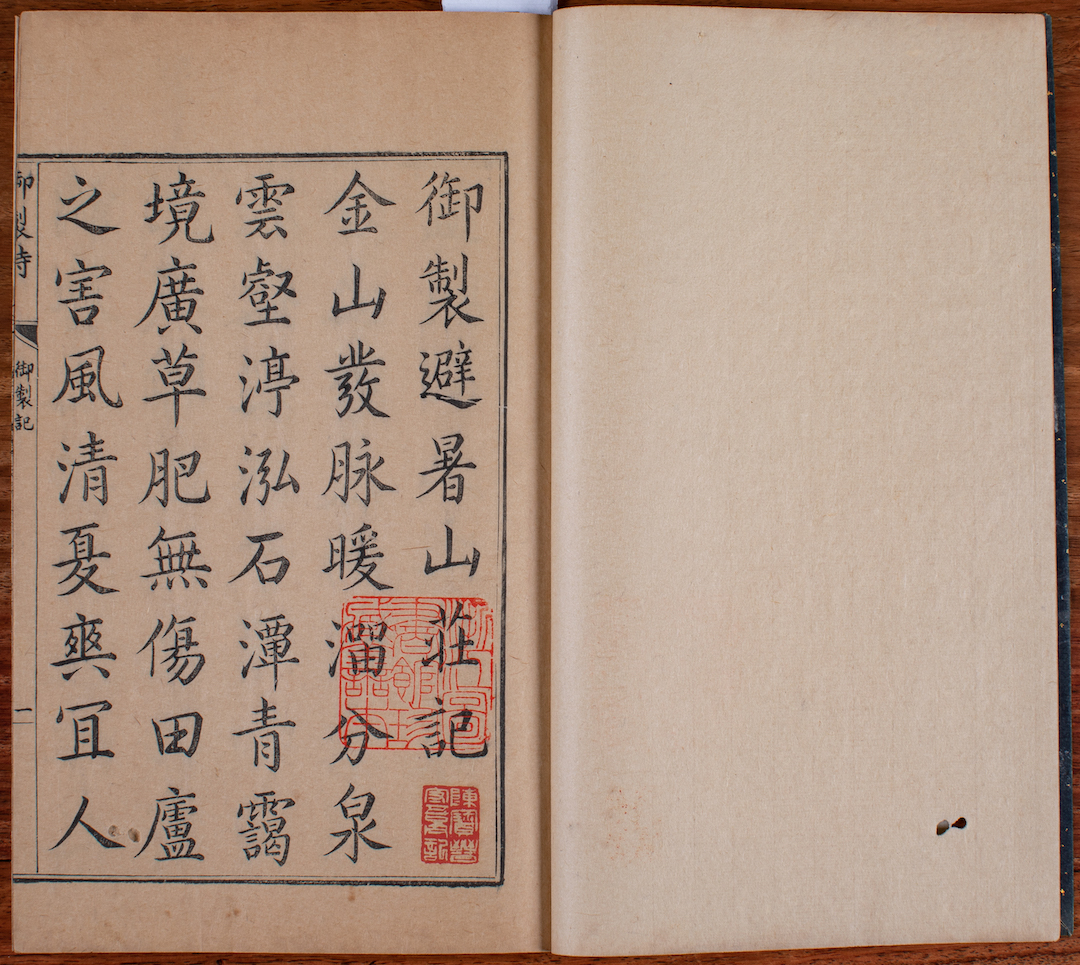 御製避暑山莊記
金山發脉暖溜分泉
雲壑渟泓石潭青靄
境廣草肥無傷田廬
之害風清夏爽冝人
御製詩
御製記
一